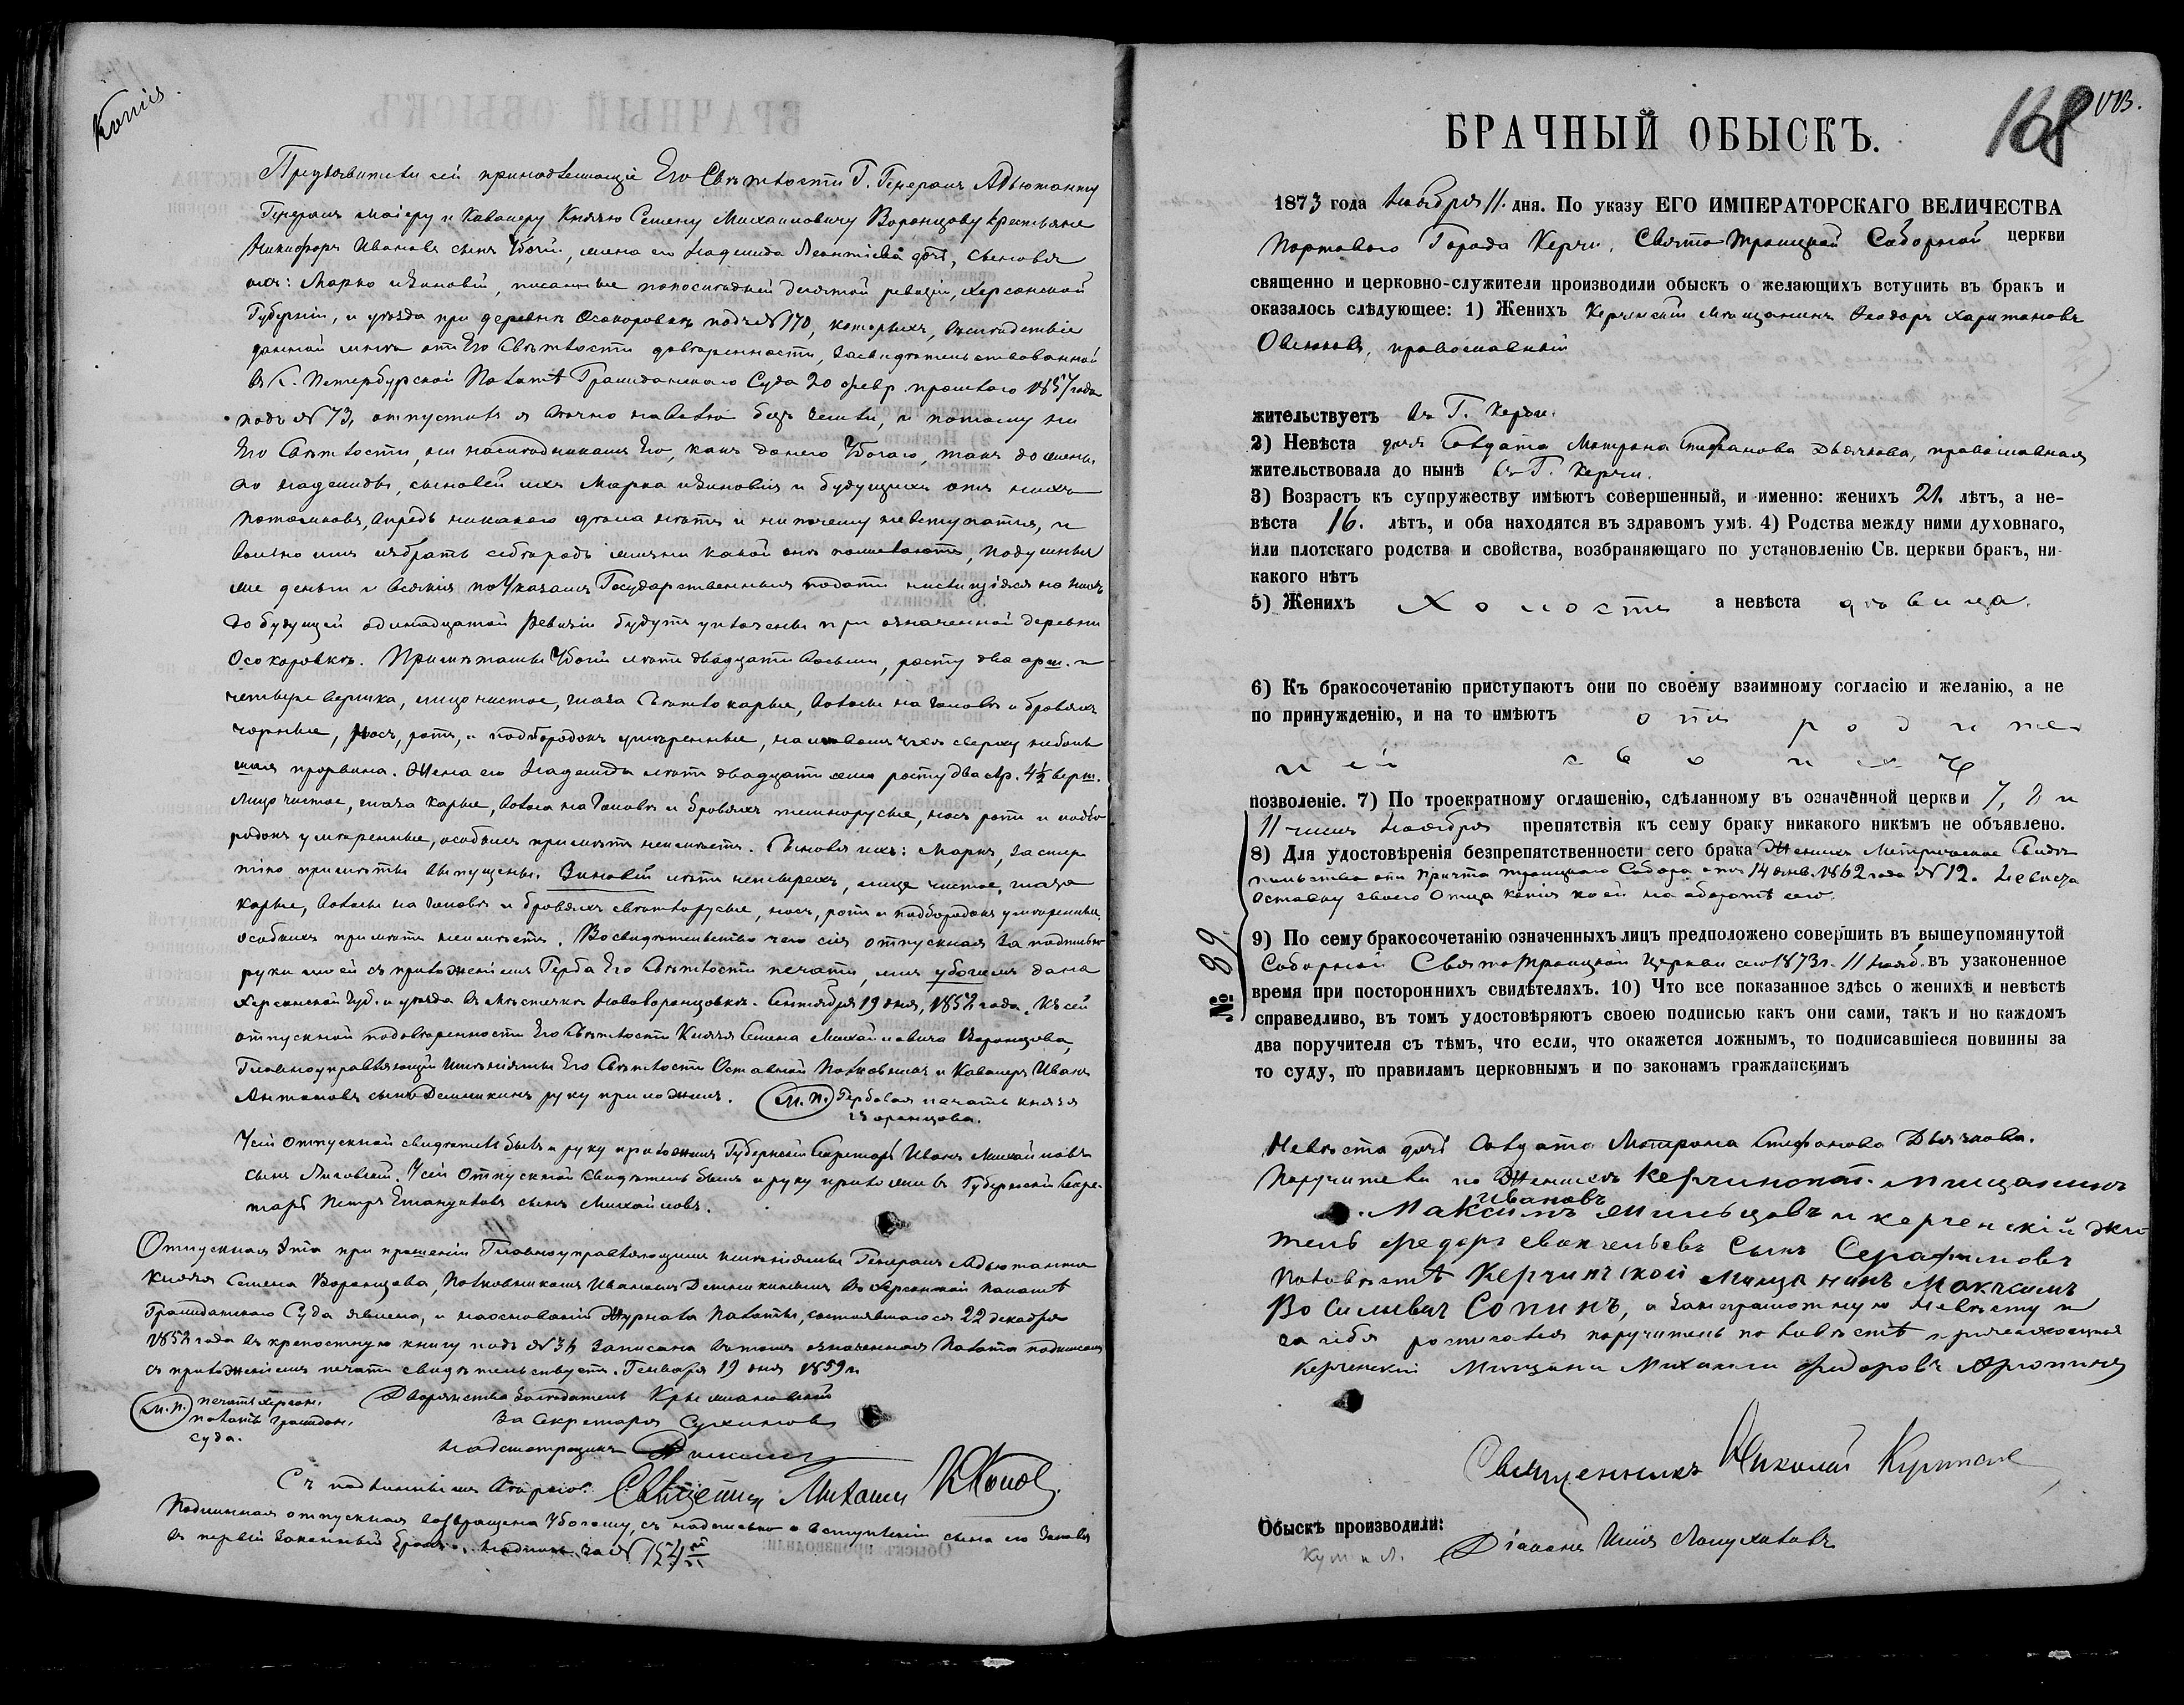 Копія.
Предъявители сей принадлежащіе Его Свѣтлости Г. Генералъ Адъютанту
Генералъ Маіеру и Кавалеру Князю Семену Михаиловичу Воронцову крестьяне
Никифоръ Ивановъ сынъ Убогій, жена его Надежда Леонтіева дочь, сыновья
ихъ: Марко и Зиновій, писанные по последней десятой ревизіи, Херсонской
Губерніи, и уезда при деревнѣ Осокоровкѣ подъ № 170, которыхъ, вслѣдствіе
данной мнѣ отъ Его Свѣтлости довѣренности, засвидѣтельствованной
въ С. Петербурской Палатѣ Гражданскаго Суда 20 февр. прошлаго 1857 года
подъ № 73, отпустилъ я вѣчно на волю безъ земли, и потому ни
Его Свѣтлости, ни наслѣдникамъ Его, какъ до него Убогаго, такъ до жены
его Надежды, сыновей ихъ Марка и Зиновія и будущихъ отъ нихъ
потомковъ, впредь никакого дѣла нѣтъ и ни почему не вступатся, и
вольно имъ избрать себѣ родъ жизни какой онъ пожелаютъ, подушныя
же деньги и всякія по Указамъ Государственныя подати числящіяся на нихъ
до будущей одинадцатой Ревизіи будутъ уплочены при означенной деревни
Осокоровкѣ. Примѣтамы Убогій лѣтъ двадцати восьми, росту два арш. и
четыре вершка, лицо чистое, глаза свѣтло карые, волосы на головѣ и бровяхъ
чорные, носъ, ротъ, и подбородокъ умѣренные, на лѣвомъ ухѣ сверху неболь
шая прорвина. Жена его Надежда лѣтъ двадцати семи росту два ар. 4½ верш.
Лицо чистое, глаза карые, волоса на головѣ и бровяхъ темнорусые, носъ ротъ и подбо
родокъ умѣренные, особыхъ примѣтъ неимѣетъ. Сыновья ихъ: Маркъ,
примѣты выпущены. Зиновій лѣтъ четырехъ, лице чистое, глаза
карые, волосы на головѣ и бровяхъ свѣтлорусые, носъ, ротъ и подбородокъ умѣренные,
особыхъ примѣтъ неимѣетъ. Во свидѣтельство чего сія отпускная за подписью
руки моей съ приложеніемъ Герба Его Свѣтлости печати, имъ Убогимъ дана
Херсонской губ. и уезда въ мѣстечкѣ Нововоронцовкѣ. Сентября 19 дня, 1858 года. Къ сей
отпускной по довѣренности Его Свѣтлости Князя Семена Михаиловича Воронцова,
Главноуправляющій Имѣніями Его Свѣтлости Отставной Полковникъ и Кавалеръ Иванъ
Антоновъ сынъ Деминкинъ руку приложилъ. (М. П.) Гербовая печать князя
Воронцова.
У сей отпускной свидѣтелемъ былъ и руку приложилъ Губернскій Секретарь Иванъ Михайловъ
сынъ Лисовскій. У сей Отпускной Свидѣтель былъ и руку приложилъ Губернскій Секре
тарь Петръ Емануиловъ сынъ Михайловъ.
Отпускная эта при прошеніи Главноуправляющимъ имѣніями Генералъ Адьютанта
Князя Семена Воронцова, Полковникомъ Ивановымъ Деминкинымъ въ Херсонской палатѣ
Гражданскаго Суда явлена, и на основаніи Журнала Палаты, состоявшагося 22 декабря
1858 года въ крепостную книгу подъ № 36 записана въ томъ означенная Палата подписомъ
съ приложеніемъ печати свидѣтельствуетъ. Генваря 19 дня 1859 г.
(М. П.) печать херсон.
палаты граждан.
суда.
Дворянства Засѣдатель
За Секретаря Сухиновъ
Надсмотрщикъ
Съ подлиннымъ вѣрно: Священникъ Михаилъ
Подлинная отпускная возвращена Убогому, съ надписью о вступленіи сына его Зиновія
въ первый законный бракъ, за № 154
168
БРАЧНЫЙ ОБЫСКЪ.
1873 года Ноября 11. дня. По указу ЕГО ИМПЕРАТОРСКАГО ВЕЛИЧЕСТВА
Портоваго Города Керчи, Свято-Троицкой Соборной церкви
священно и церковно-служители производили обыскъ о желающихъ вступить въ бракъ и
оказалось слѣдующее: 1) Женихъ Керченскій мѣщанинъ Ѳеодоръ Харитоновъ
Овсюковъ, православный
жительствуетъ въ Г. Керчи.
2) Невѣста дочь Солдата Матрона Стефанова Дьячкова, православная
жительствовала до нынѣ въ Г. Керчи.
3) Возрастъ къ супружеству имѣютъ совершенный, и именно: женихъ 21. лѣтъ, а не-
вѣста 16. лѣтъ, и оба находятся въ здравомъ умѣ. 4) Родства между ними духовнаго,
или плотскаго родства и свойства, возбраняющаго по установленію Св. церкви бракъ, ни-
какого нѣтъ
5) Женихъ Холостъ а невѣста дѣвица.
6) Къ бракосочетанію приступаютъ они по своему взаимному согласію и желанію, а не
по принужденію, и на то имѣютъ отъ родите
лей своихъ
позволеніе. 7) По троекратному оглашенію, сдѣланному въ означенной церкви 7, 8 и
11 числъ Ноября препятствія къ сему браку никакого никѣмъ не объявлено.
8) Для удостовѣренія безпрепятственности сего брака Женихъ Метрическое Свидѣ
тельство отъ Причта Троицкаго Собора отъ 14 янв. 1862 года № 12. Невѣста
Отставку своего Отца копія коей на оборотѣ сего.
№ 89.
9) По сему бракосочетанію означенныхъ лицъ предположено совершить въ вышеупомянутой
Соборной Свято Троицкой Церкви сего 1873 г. 11 Нояб. въ узаконенное
время при постороннихъ свидѣтеляхъ. 10) Что все показанное здѣсь о женихѣ и невѣстѣ
справедливо, въ томъ удостовѣряютъ своею подписью какъ они сами, такъ и по каждомъ
два поручителя съ тѣмъ, что если, что окажется ложнымъ, то подписавшіеся повинны за
то суду, по правиламъ церковнымъ и по законамъ гражданскимъ
Невѣста дочь Солдата Матрона Стефанова Дьячкова.
Поручители по Женихѣ мищанинъ
Ивановъ
Максимъ и керченскій жи
тель Федоръ сынъ Серафимовъ
По невѣстѣ Керчинской Мищанинъ Максимъ
Восильевъ Сопинъ, а за неграмотную Невѣсту и
за себя росписался поручитель по невѣстѣ
Керченскій Мищани Михаилъ Федоровъ
Священникъ Николай
Обыскъ производили:
Діаконъ Илія Лопухановъ